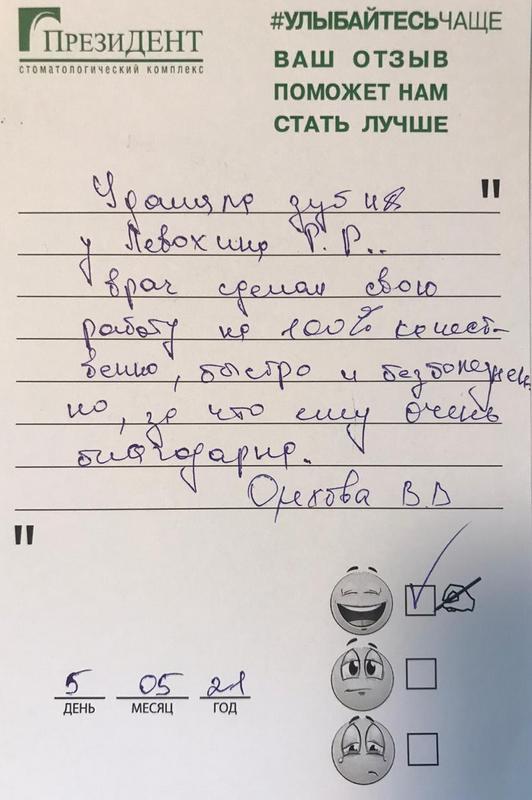 ПРЕЗИДЕНТ
СТОМАТОЛОГИЧЕСКИЙ КОМПЛЕКС
#УЛЫБАЙТЕСЬЧАЩЕ
ВАШ ОТЗЫВ
ПОМОЖЕТ НАМ
СТАТЬ ЛУЧШЕ
"
Удаляла зубик
у Левохина Р. Р..
врач сделал свою
работу на 100% качест-
венно, быстро и безболезнен
но, за что ему очень
благодарна.
Орехова В.В
"
5 05 21
ДЕНЬ МЕСЯЦ ГОД